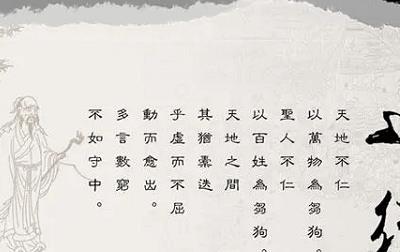 天地不仁
以萬物為芻狗。
聖人不仁
以百姓為芻狗。
天地之間
其猶橐迭
乎虛而不屈
動而愈出。
多言數窮
不如守中。